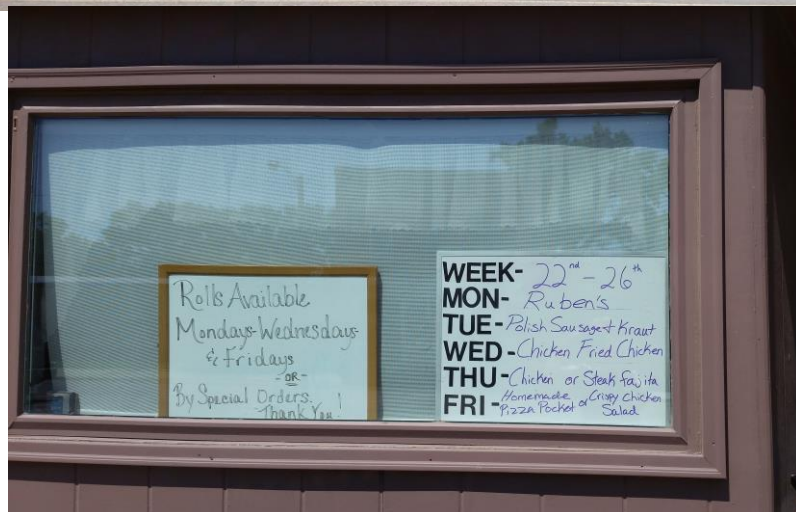 Rolls Available
Mondays-Wednesdays-
& Fridays
-OR-
By Special Orders.
Thank You!
WEEK- 22nd-26th
MON- Ruben's
TUE-Polish Sausage & Kraut
WED-Chicken Fried Chicken
THU-Chicken or Steak fajita
FRI-Homemade Pizza Pocket or Crispy Chicken Salad